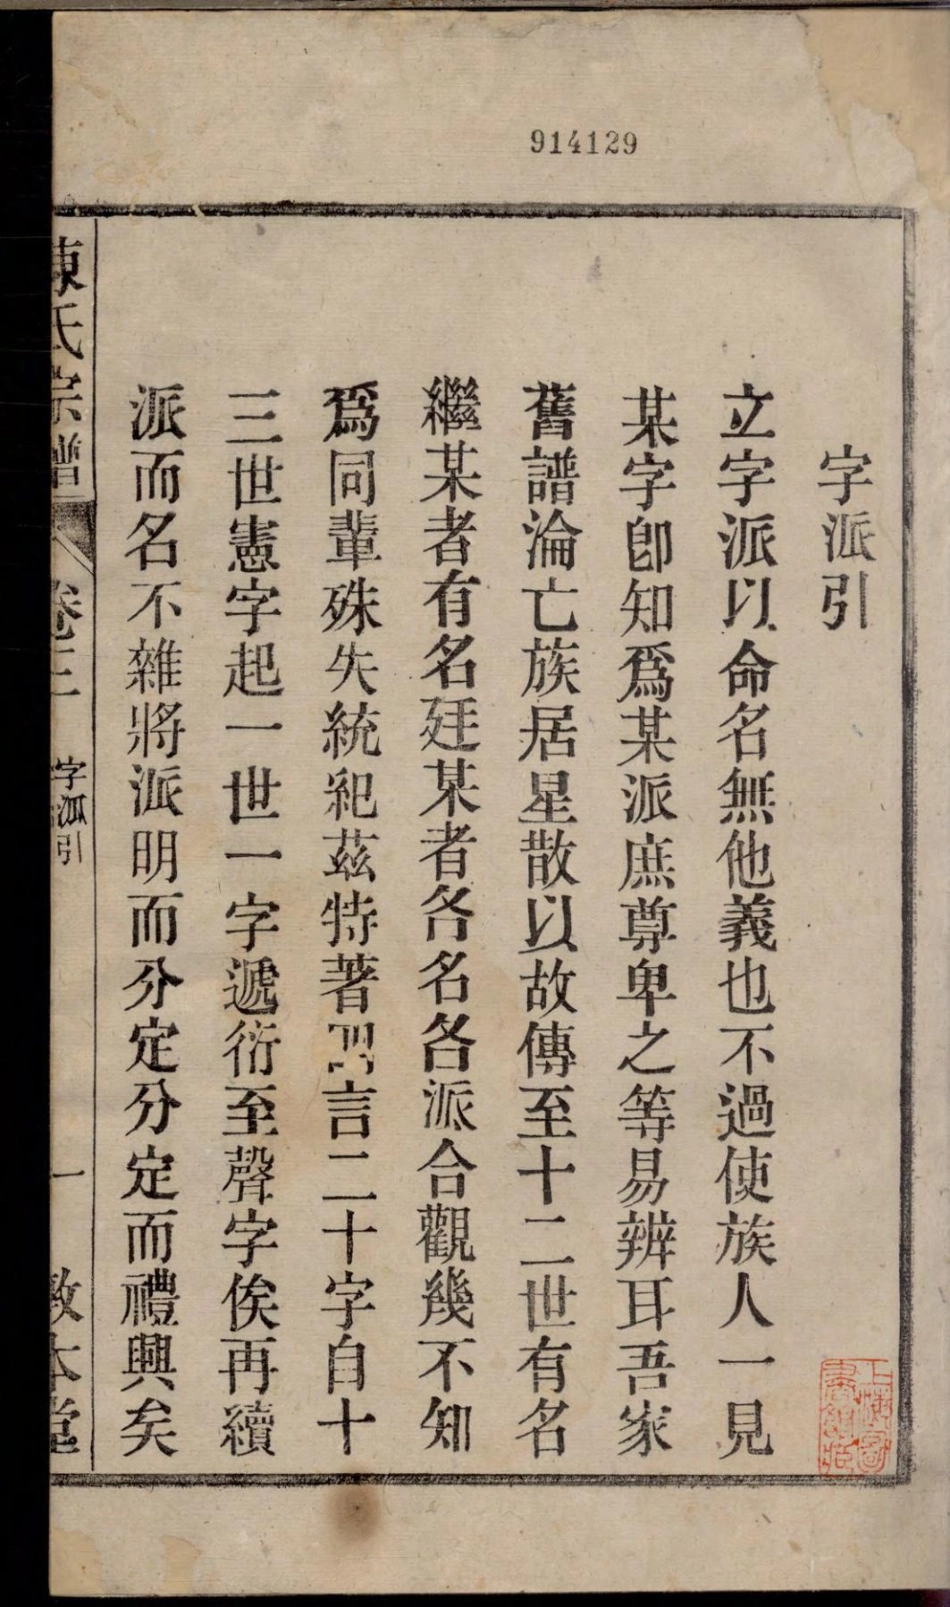 914129
字派引
立字派以命名無他義也不過使族人一見
某字卽知爲某派庶尊卑之等易辨耳吾家
舊譜淪亡族居星散以故傳至十二世有名
繼某者有名廷某者各名各派合觀幾不知
爲同輩殊失統紀茲特著言二十字自十
三世憲字起一世一字遞衍至聲字俟再續
派而名不雜將派明而分定分定而禮興矣
陳氏宗譜
卷三
字派引
一
敦本堂
上海圖書館藏